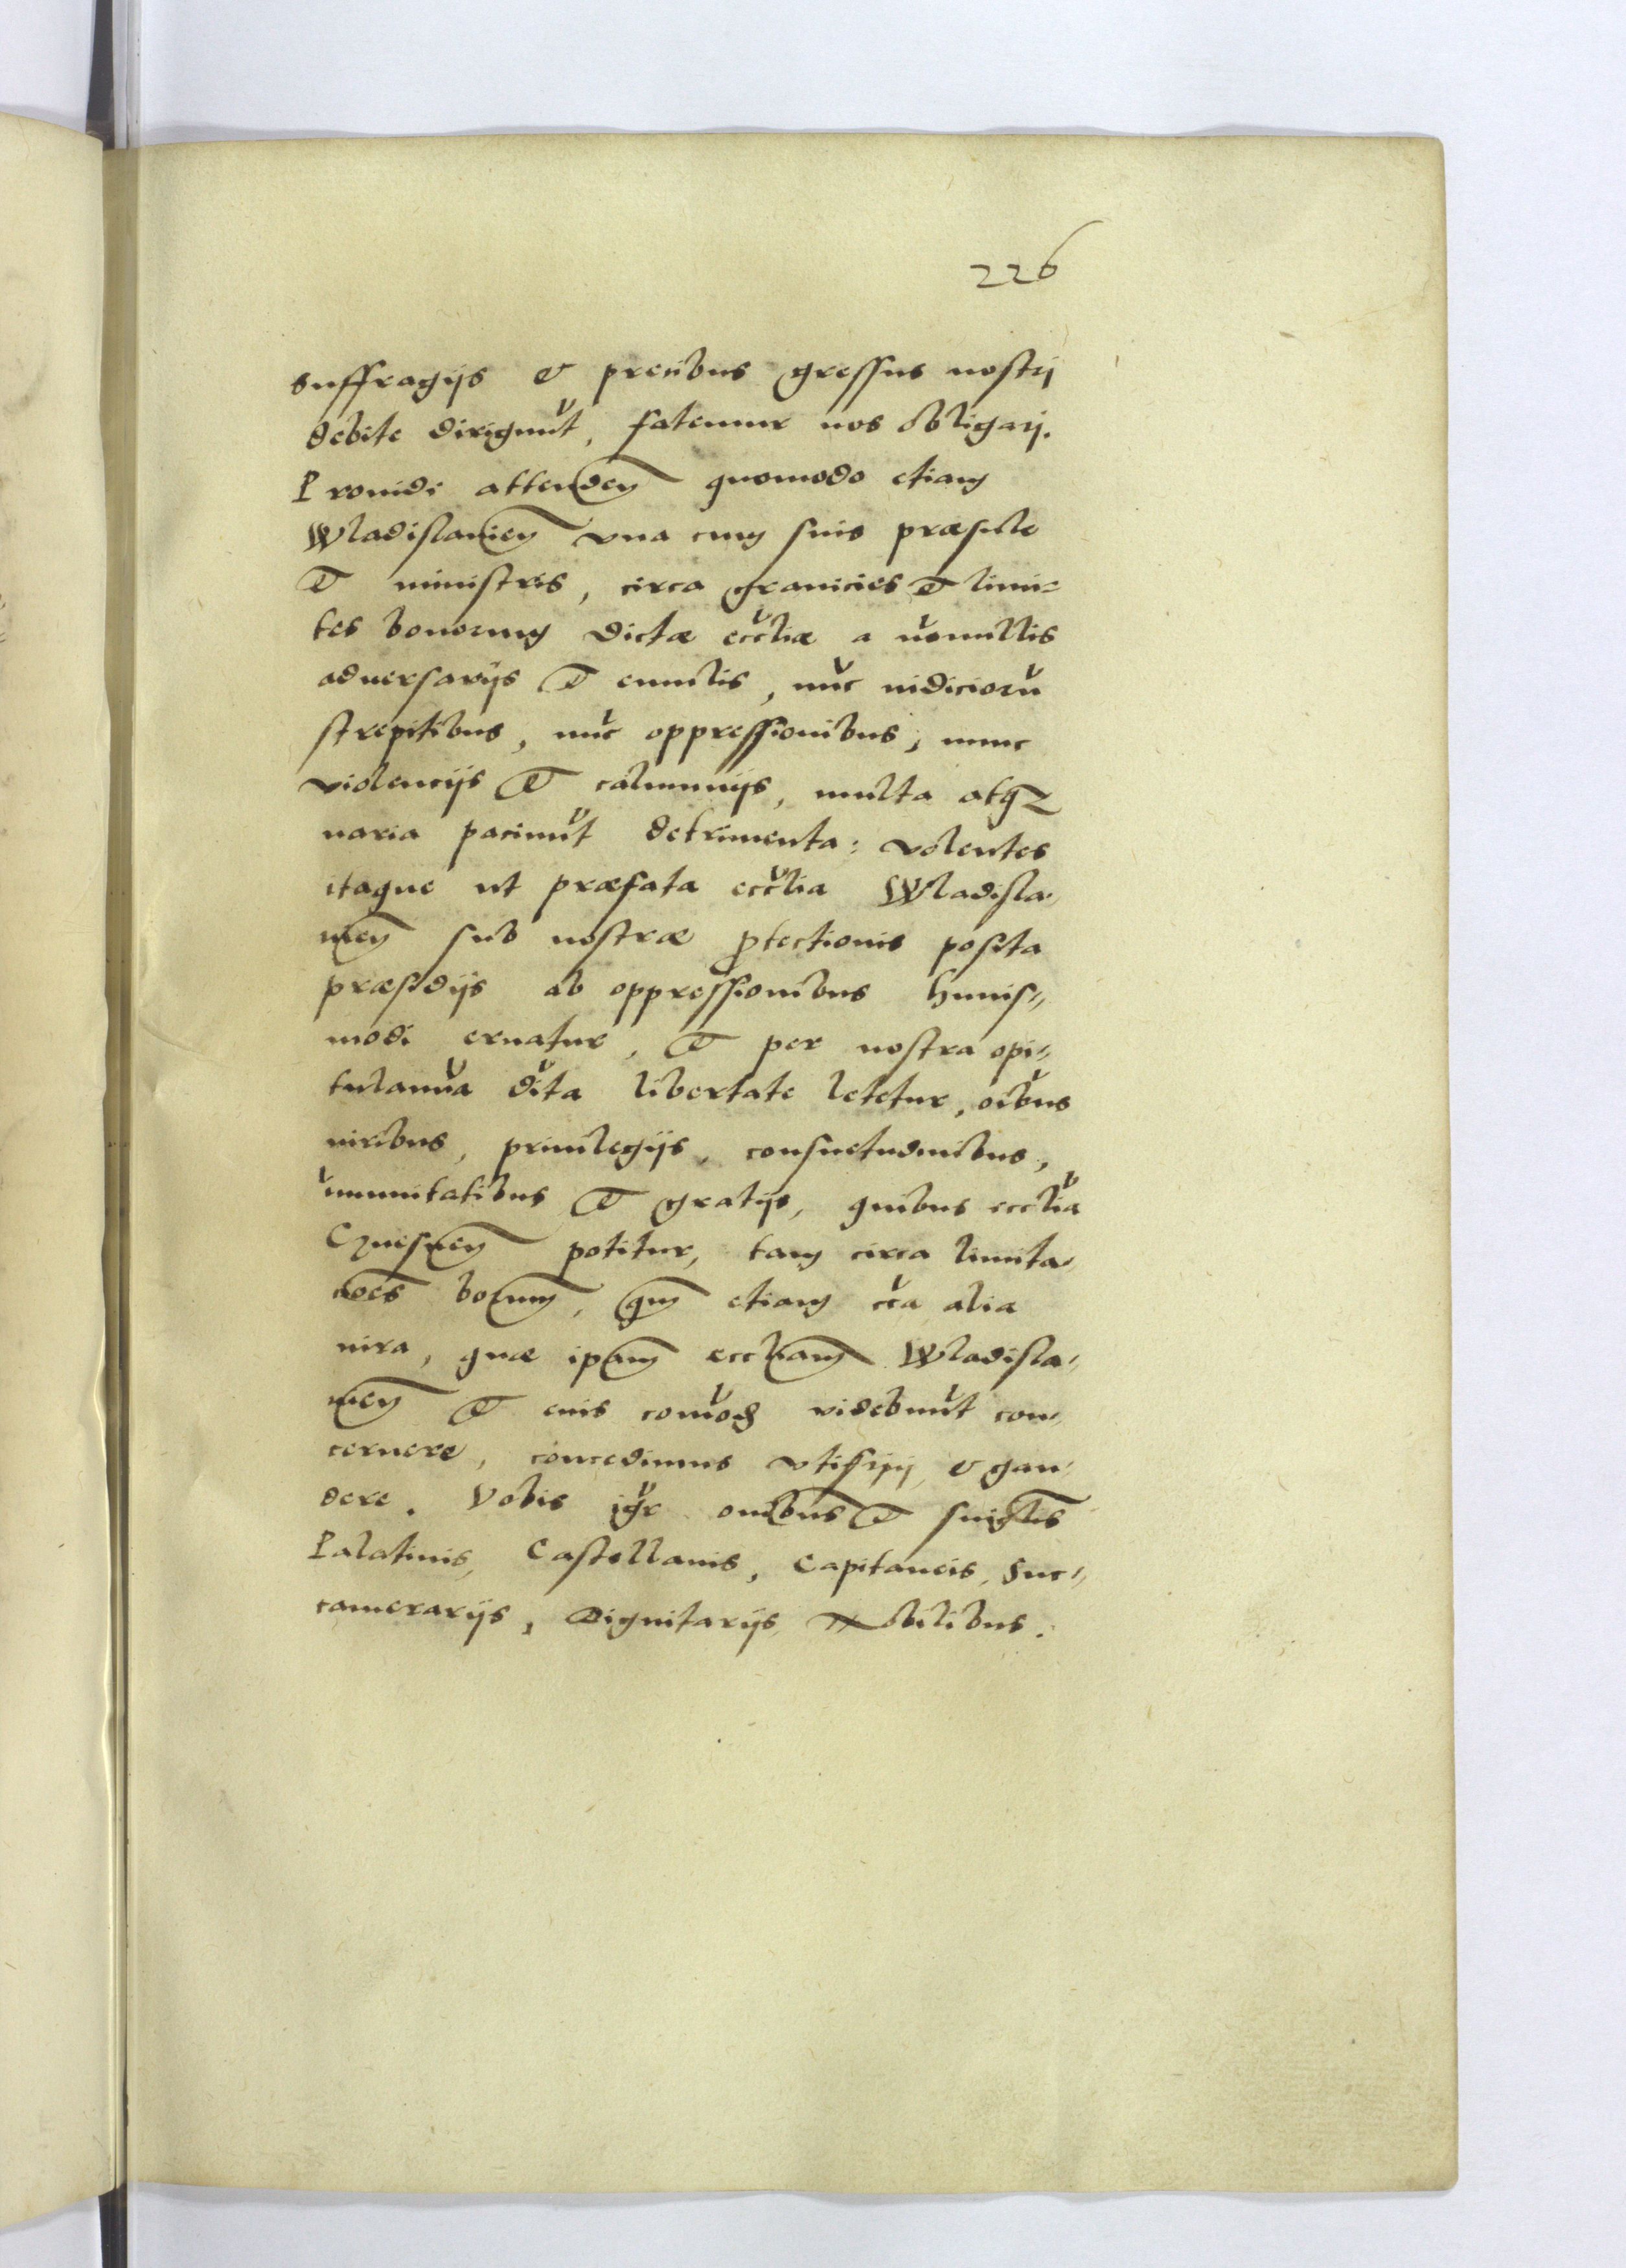 226
suffragijs & precibus gressus nostrj
debite dirigunt, fatemur nos obligarj.
Prouide attenden quomodo etiam
Wladislauien vna cum suis præsule
& ministris, circa granicies & limi=
tes bonorum dictæ eccliæ a nonullis
aduersarijs & emulis, nuc iudicioru
strepitibus, nuc oppressionibus, nunc
violencijs & calumnijs, multa atqz
uaria paciunt detrimenta: volentes
itaque ut præfata ecclia Wladisla,
uien sub nostræ ptectionis posita
præsidijs ab oppressionibus huius„
modi eruatur, & per nostra opi„
tulamīa dīta libertate letetur, oībus
iuribus, priuilegijs, consuetudinibus,
immunitatibus & gratijs, quibus ecclia
Gnesnen potitur, tam circa limita,
cioes bonum, qm etiam cca alia
iura, quæ ipam eccliam Wladisla„
uien & eius comod videbunt con„
cernere, concedimus vti frui, & gau„
dere. Vobis igr omibus & suiglis
Palatinis, Castellanis, Capitaneis, Suc„
camerarijs, Dignitarijs, Nobilibus.